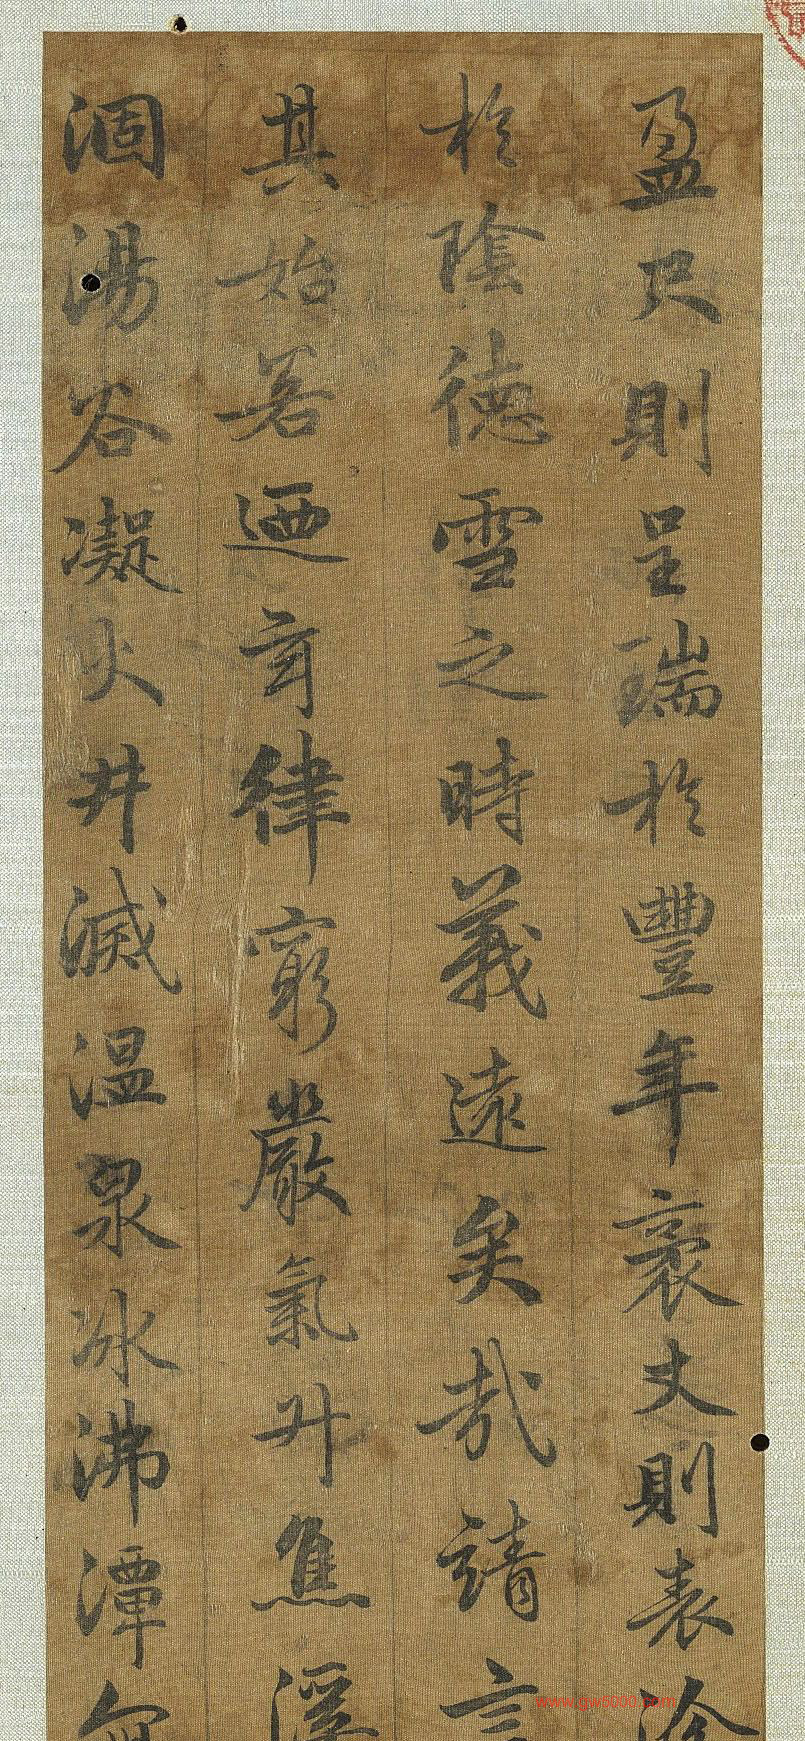 盈尺則呈瑞於豐年袤丈則表沴
於陰德雪之時義遠矣哉請言
其始若迺玄律窮嚴氣升焦溪
涸湯谷凝火井滅温泉冰沸潭
www.gw8000.com